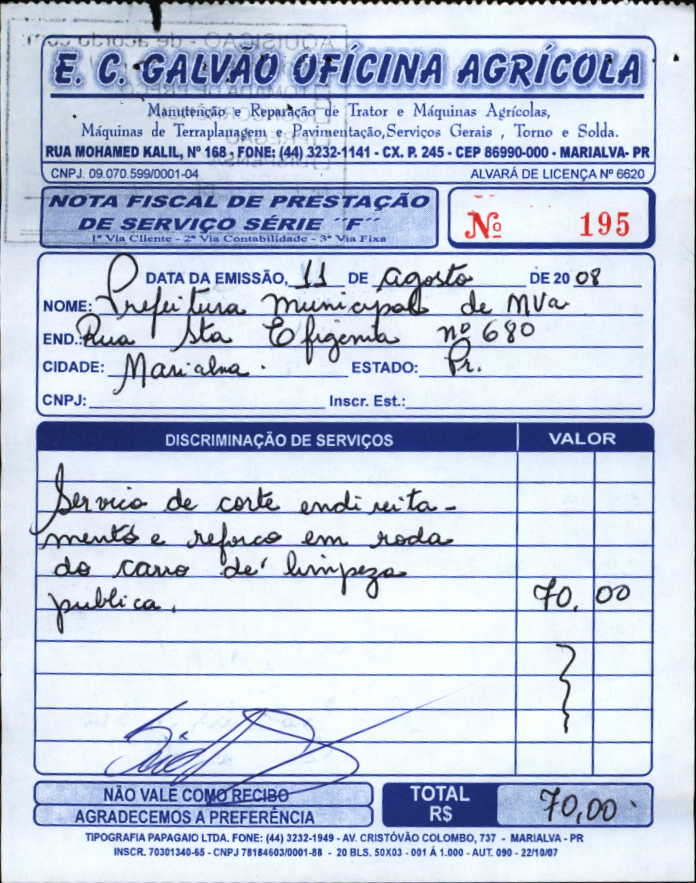 E. C. GALVÃO OFÍCINA AGRÍCOLA
Manutenção e Reparação de Trator e Máquinas Agrícolas,
Máquinas de Terraplanagem e Pavimentação,Serviços Gerais , Torno e Solda.
RUA MOHAMED KALIL, Nº 168 , FONE: (44) 3232-1141 - CX. P. 245 - CEP 86990-000 - MARIALVA- PR
CNPJ. 09.070.599/0001-04 ALVARÁ DE LICENÇA Nº 6620
NOTA FISCAL DE PRESTAÇÃO
DE SERVIÇO SÉRIE ´´F´´
1ª Via Cliente - 2ª Via Contabilidade - 3ª Via Fixa
Nº 195
DATA DA EMISSÃO, 11 DE Agosto DE 20 08
NOME: Prefeitura Municipal de MVa
END.: Rua Sta Efigenia nº 680
CIDADE: Marialva. ESTADO: Pr.
CNPJ: Inscr. Est.:
DISCRIMINAÇÃO DE SERVIÇOS VALOR
Servico de corte endireita-
mento e reforco em roda
do carro de limpeza
publica. 70,00
NÃO VALE COMO RECIBO
AGRADECEMOS A PREFERÊNCIA
TOTAL R$ 70,00
TIPOGRAFIA PAPAGAIO LTDA. FONE: (44) 3232-1949 - AV. CRISTÓVÃO COLOMBO, 737 - MARIALVA - PR
INSCR. 70301340-65 - CNPJ 78184603/0001-88 - 20 BLS. 50X03 - 001 Á 1.000 - AUT. 090 - 22/10/07